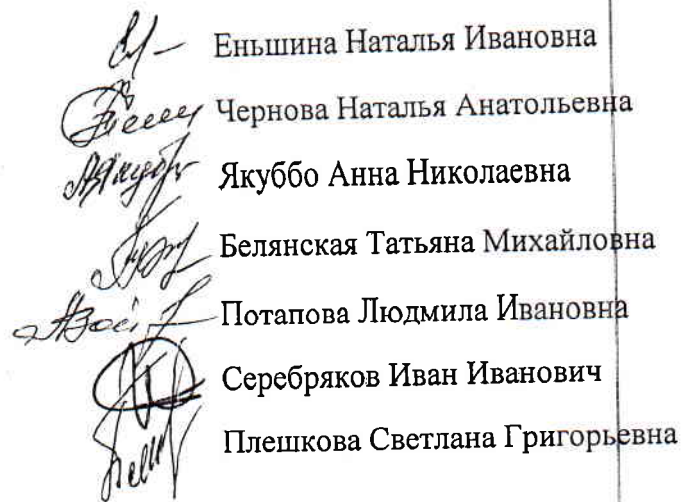 Еньшина Наталья Ивановна
Чернова Наталья Анатольевна
Якуббо Анна Николаевна
Белянская Татьяна Михайловна
Потапова Людмила Ивановна
Серебряков Иван Иванович
Плешкова Светлана Григорьевна